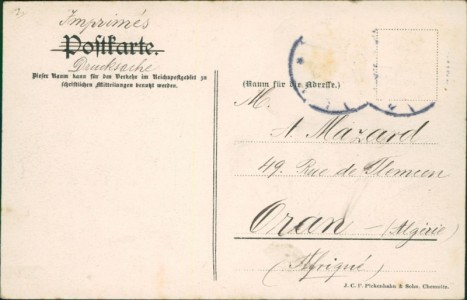 Imprimés
Postkarte.
Drucksache
Dieser Raum kann für den Verkehr im Reichspostgebiet zu
schriftlichen Mitteilungen benutzt werden.
(Raum für die Adresse.)
M.
A. Mazard
49. Rue de Tlemcen
Oran - (Algérie)
(Afrique)
J. C. F. Pickenhahn & Sohn, Chemnitz.